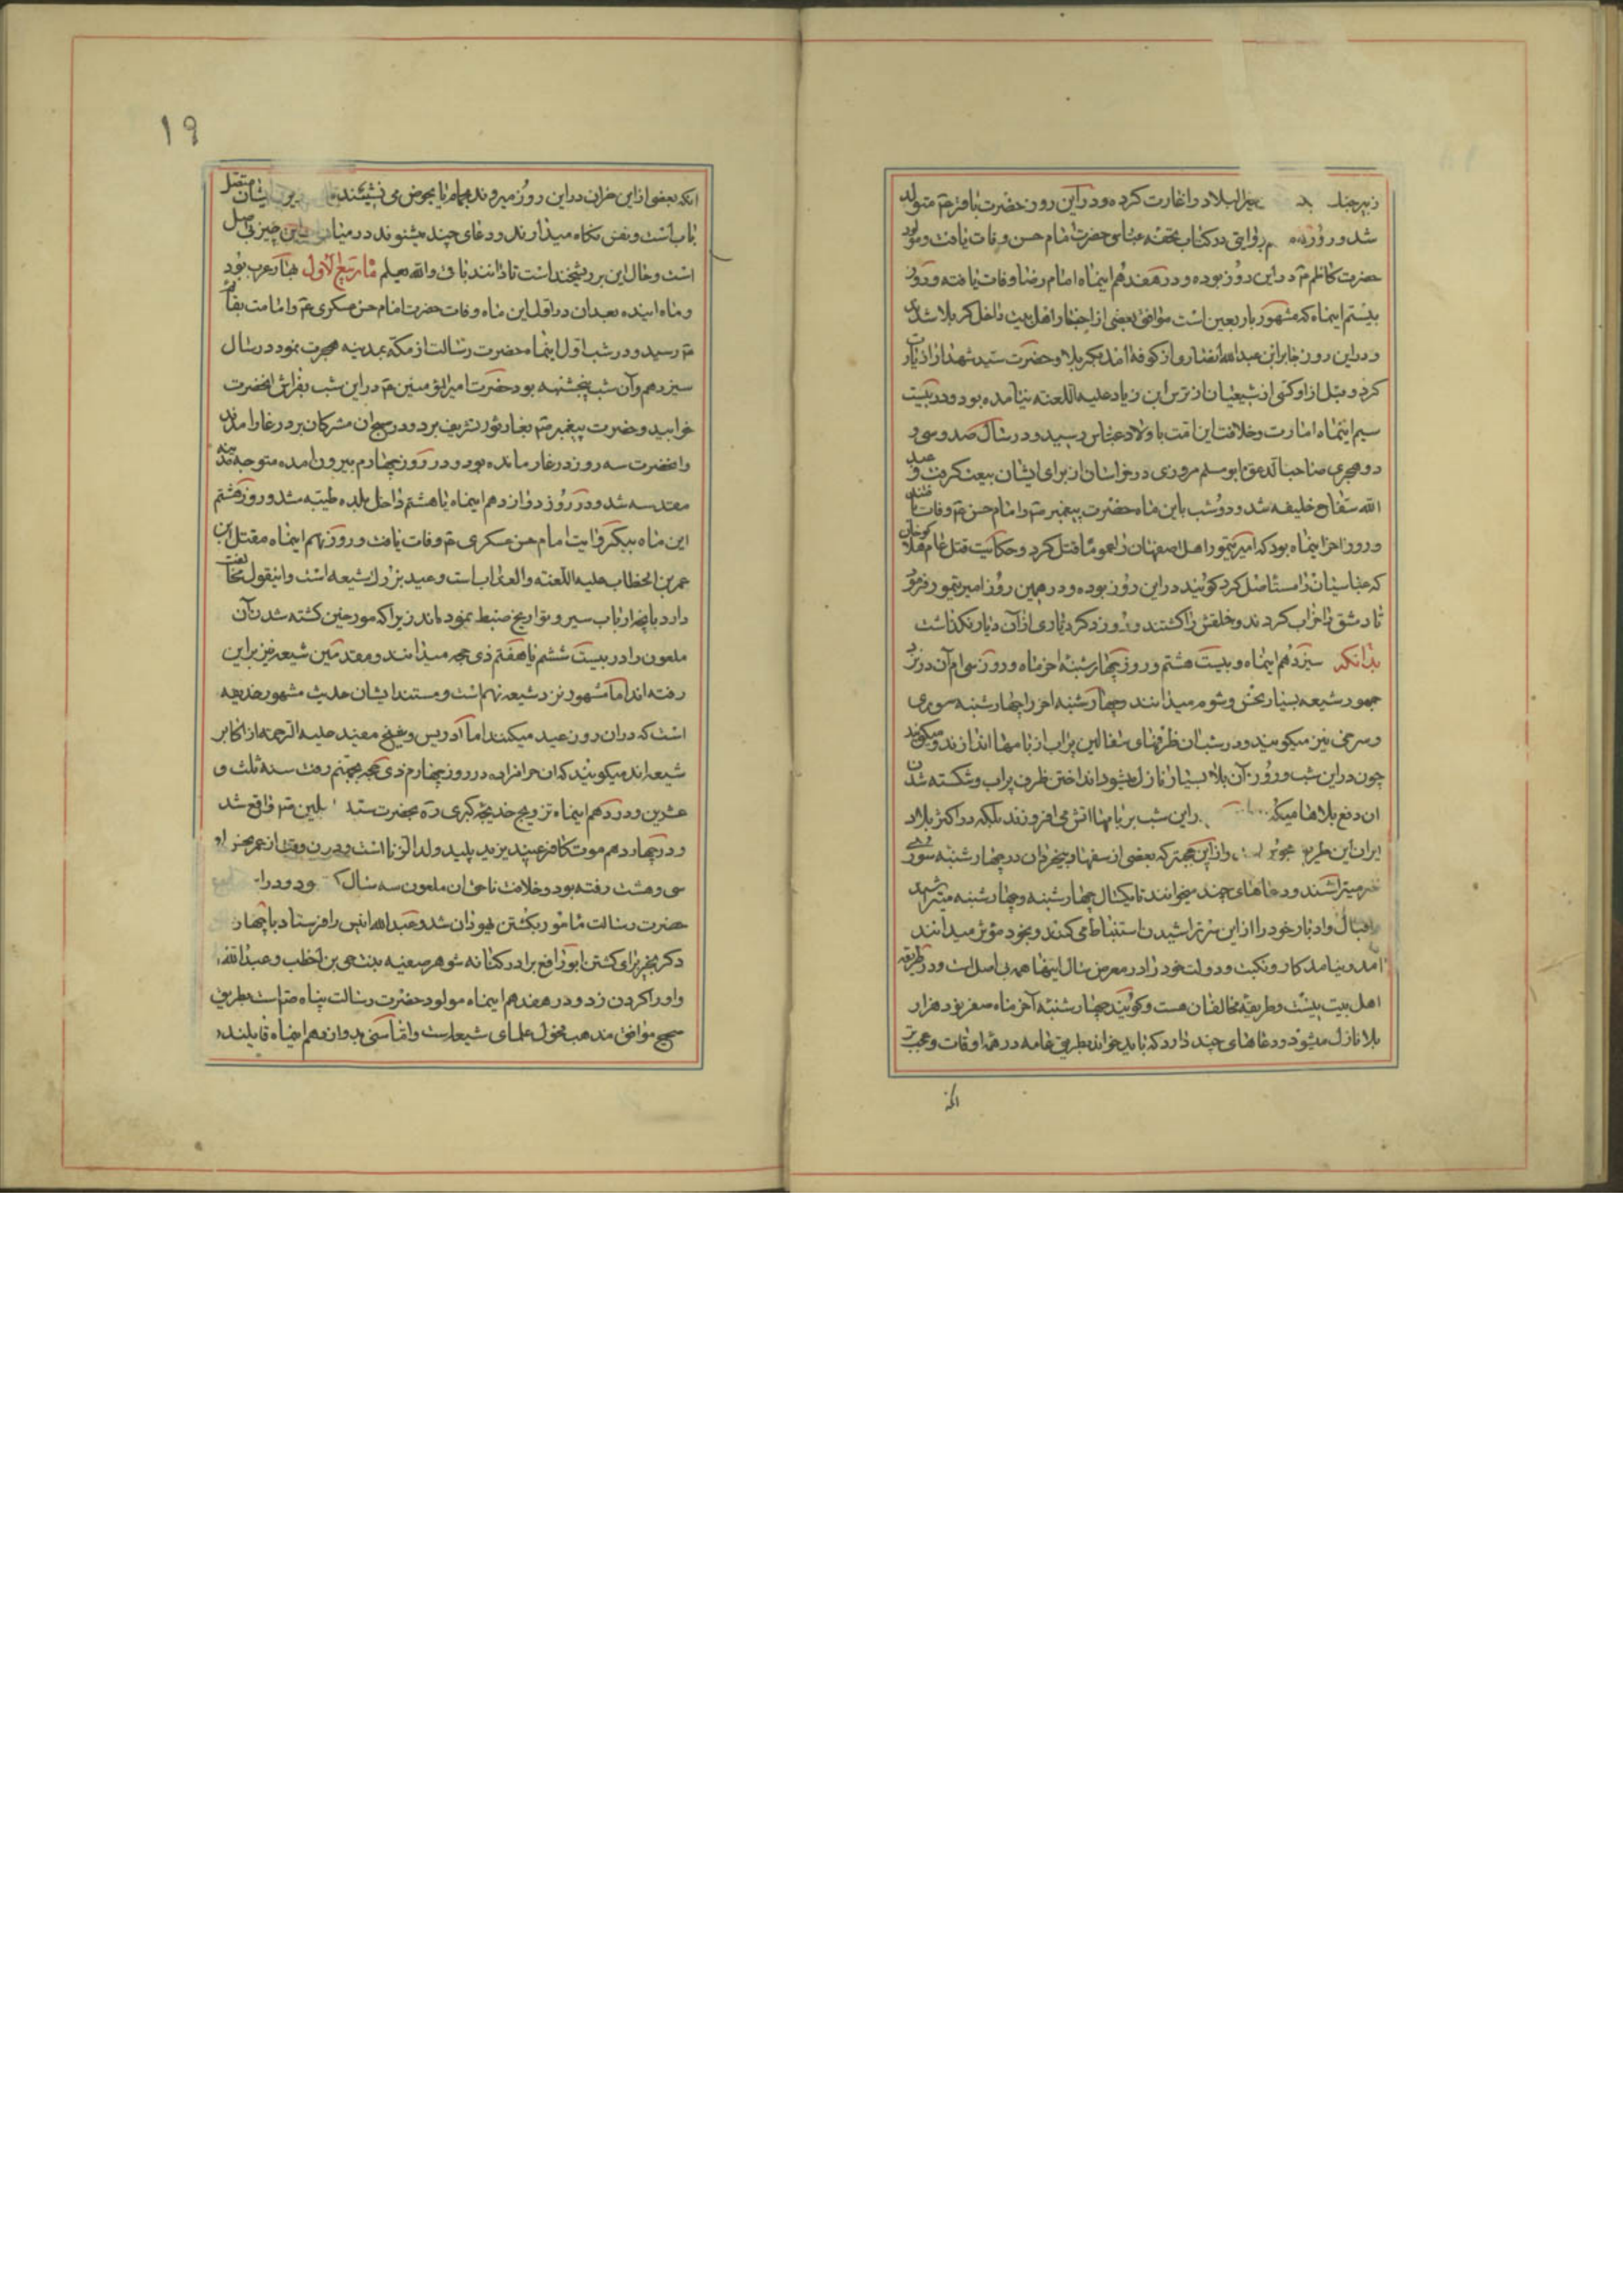 خیرالبلاد را غارت کرده و در این روز حضرت باقر ع م متولد
شد و روز بروایتی در کتاب تحفه عباسی حضرت امام حسن وفات یافت و مولود
حضرت کاظم ع م در این روز بوده و در هفدهم اینماه امام رضا وفات یافته و روز
بیستم اینماه که مشهور باربعین است موافق بعضی از اخبار اهل بیت داخل کربلا شدند
و در این روز جابر ابن عبدالله انصاری از کوفه آمد بکربلا و حضرت سید شهدا را زیارت
کرد و قبل از او کسی از شیعیان از ترس ابن زیاد علیه اللعنه نیامده بود و در بیست
سیم اینماه امارت و خلافت این امت باولاد عباس رسید و در سال صد و سی و
دو هجری صاحب الدعوة ابو مسلم مروزی در خراسان از برای ایشان بیعت گرفت و عبد
الله سفاح خلیفه شد و دو شب باین ماه حضرت پیغمبر ص م و امام حسن ع م وفات یافتند
و روز آخر اینماه بود که امیر تیمور اهل اصفهان را عموما قتل کرد و حکایت قتل عام هلاکوخان
که عباسیان را مستأصل کرد گویند در این روز بوده و در همین روز امیر تیمور فرمود
تا دمشق را خراب کردند و خلقش را کشتند و روز دکر دیاری از آن دیار نکذاشت
بدانکه سیزدهم اینماه و بیست هشتم و روز چهارشنبه آخر ماه و روز سی ام آن در نزد
جمهور شیعه بسیار نحس و شوم میدانند و چهارشنبه آخر را چهارشنبه سوری
و سرخی نیز میکویند و در شب آن ظرفهای سفالین پر آب از بامها اندازند و میکویند
چون در این شب و روز آن بلا بسیار نازل میشود انداختن ظرف پر آب و شکسته شدن
آن دفع بلاها میکند در این شب بر بامها آتش می افروزند بلکه در اکثر بلاد
ایران این طریق و از این جهتر که بعضی از سفها و بیخردان در چهارشنبه سوری
سر میتراشند و دعاهای چند میخوانند تا یکسال چهارشنبه و چهارشنبه میتراشند
اقبال و ادبار خود را از این سر تراشیدن استنباط می کنند و بخود مؤثر میدانند
آمد و نیامد کار و نکبت و دولت خود را در معرض سال اینها همه بی اصل است و در طریقه
اهل بیت نیست و طریقه مخالفان هست و گویند چهارشنبه آخر ماه صفر نود هزار
بلا نازل میشود و دعاهای چند دارد که باید خواند بطریق عامه در همه اوقات و عجب تر
انکه
۱۹
انکه بعضی از این خران در این روز میروند بحمام یا بحوض می نشینند ایشان متصل
باب است و نفس نگاه میدارند و دعای چند میشنوند در میان این چیز بی اصل
است و حال این بر ریشخند است تا دانند باقی والله یعلم ماه ربیع الاول بهار عرب بود
و ماه آینده بعد از آن در اول این ماه وفات حضرت امام حسن عسکری ع م و امامت بقائم
ع م رسید و در شب اول اینماه حضرت رسالت از مکه بمدینه هجرت نمود در سال
سیزدهم و آن شب پنجشنبه بود حضرت امیر المؤمنین ع م در این شب بفراش آنحضرت
خوابید و حضرت پیغمبر ص م بغار ثور تشریف برد و در صبح آن مشرکان بر در غار آمدند
و آنحضرت سه روز در غار مانده بود و در روز چهارم بیرون آمده متوجه مدینه
مقدسه شد و در روز دوازدهم اینماه یا هشتم داخل بلده طیبه شد و روز هشتم
این ماه بیک روایت امام حسن عسکری ع م وفات یافت و روز نهم اینماه مقتل ابن
عمر بن الخطاب علیه اللعنه والعذاب است و عید بزرک شیعه است و اینقول مخالفت
دارد بانچه ارباب سیر و تواریخ ضبط نموده اند زیرا که مورخین کشته شدن آن
ملعون را در بیست ششم یا هفتم ذی حجه میدانند و متقدمین شیعه نیز بر این
رفته اند اما مشهور نزد شیعه نهم است و مستند ایشان حدیث مشهور حذیفه
است که در آن روز عید میکنند اما ادریس و شیخ مفید علیه الرحمه از اکابر
شیعه اند میکویند که آن حرامزاده در روز چهارم ذی حجه بجهنم رفت سنه ثلث و
عشرین و در دهم اینماه تزویج خدیجه کبری ره بحضرت سید المرسلین ص م واقع شد
و در چهاردهم موت کافر عنید یزید پلید ولد الزنا است و در آن وقت از عمر نحس او
سی و هشت رفته بود و خلافت ناحق آن ملعون سه سال بود و در
حضرت رسالت مأمور بکشتن یهودان شد و عبدالله انیس را فرستاد با چهار
دکر بخیبر برای کشتن ابو رافع برادر کنانه شوهر صفیه بنت حی بن اخطب و عبدالله
و او را کردن زد و در هفدهم اینماه مولود حضرت رسالت پناه ص م است بطریق
صحیح موافق مذهب فحول علمای شیعه است و اما سنی بدوازدهم اینماه قایلند